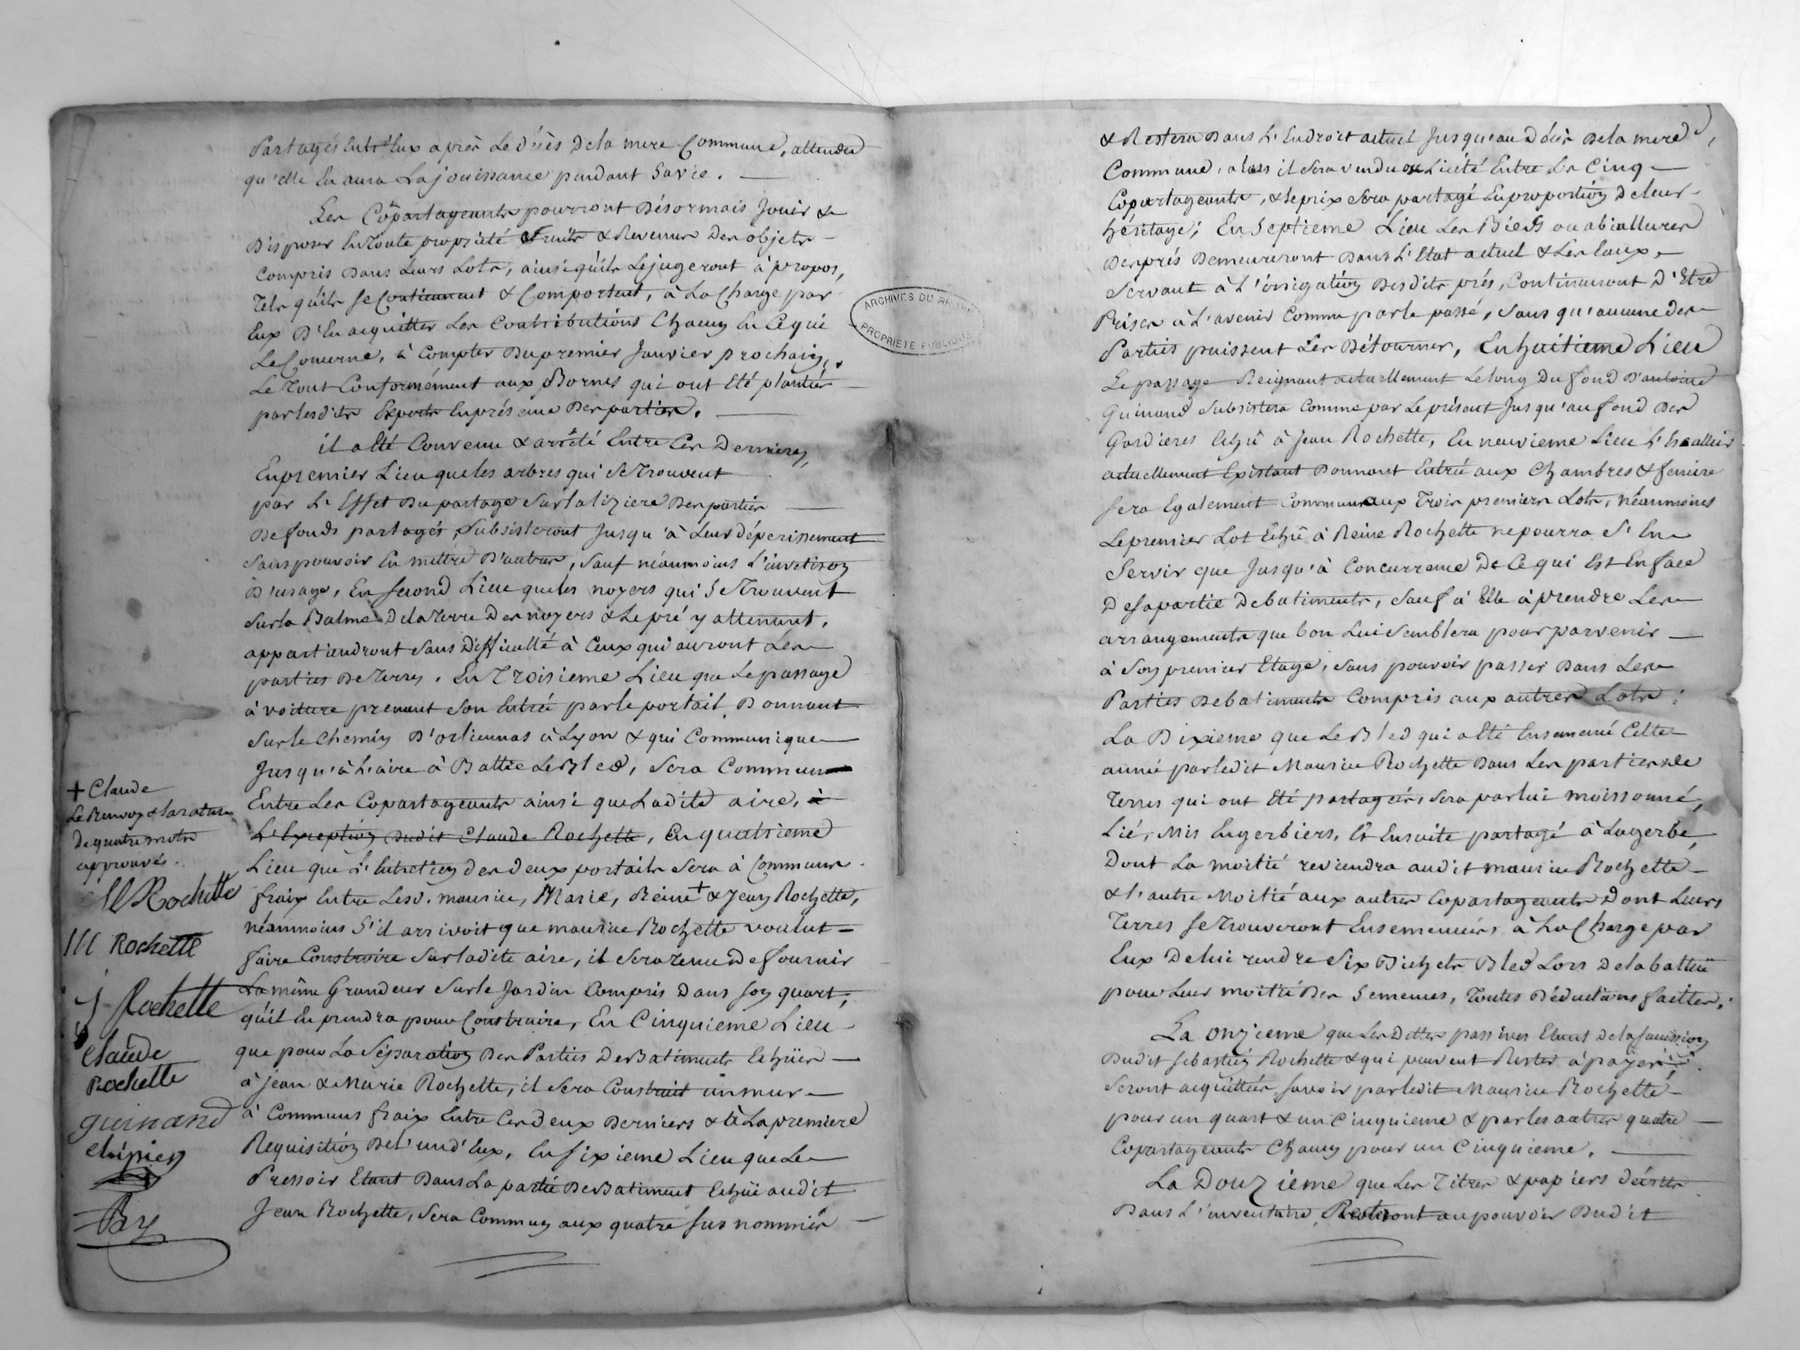 Partagés Entr'Eux après Le décès De la mere Commune, attendu
qu'elle En aura La jouissance pendant Sa vie.
Les Copartageants pourront Désormais Jouir &
Disposer En Toute propriété Fruits & Revenus Des objets
Compris Dans Leurs Lots, ainsi qu'ils Le jugeront à propos,
Tels qu'ils se Contiennent & Comportent, à La Charge par
Eux D'En acquitter Les Contributions Chacun En Ce qui
Le Concerne, à Compter Du premier Janvier prochain,
Le Tout Conformément aux Bornes qui ont Eté plantées
par lesdits Experts En présence Des parties.
il a Eté Convenu & arrêté Entre Ces Derniers,
En premier Lieu que les arbres qui Se Trouvent
par L'Effet Du partage Sur la liziere Des parties
De fonds partagés, Subsisteront Jusqu'à Leur dépérissement
Sans pouvoir En mettre D'autres, Sauf néanmoins
D'usage, En Second Lieu que les noyers qui Se Trouvent
Sur la Balme De la Terre Des noyers & Le pré y attenant,
appartiendront Sans Difficulté à Ceux qui auront Les
parties De Terres. En Troisieme Lieu que Le passage
à voiture prenant Son Entrée par le portail Donnant
Sur le Chemin D'orliennas à Lyon & qui Communique
Jusqu'à L'aire à Battre Le Bled, Sera Commun
Entre Les Copartageants ainsi que Ladite aire, à
L'Exception dudit Claude Rochette, En quatrieme
Lieu que L'Entretien des deux portails Sera à Communs
fraix Entre Lesd. maurice, Marie, Reine + & Jean Rochette,
néanmoins S'il arrivoit que maurice Rochette voulut
faire Construire Sur ladite aire, il Sera Tenu De fournir
La même Grandeur Sur le Jardin Compris Dans Son quart,
qu'il En prendra pour Construire, En Cinquieme Lieu
que pour La Séparation Des Parties De Batiments Echües
à Jean & Marie Rochette, il Sera Construit un mur
à Communs fraix Entre Ces deux Derniers & à La premiere
Requisition De L'un d'Eux, En sixieme Lieu que Le
Pressoir Etant Dans La partie De Batiment Echüe audit
Jean Rochette, Sera Commun aux quatre Sus nommés
+ Claude
Le Renvoy & la rature
De quatre mots
approuvés.
M Rochette
M Rochette
J. Rochette
Claude
Rochette
guinand
chipier
& Restera Dans L'Endroit actuel Jusqu'au Décès De la mere
Commune, alors il Sera vendu ou Licité Entre Les Cinq
Copartageants, & le prix Sera partagé En proportion De leur
héritage; En Septieme Lieu Les Bieds ou abialleures
Des prés Demeureront Dans L'Etat actuel & Les Eaux
Servant à L'irrigation Desdits prés, Continueront D'Etre
Prises à L'avenir Comme par le passé, Sans qu'aucune des
Parties puissent Les Détourner, En huitieme Lieu
Le passage Reignant actuellement Le long Du fond D'antoine
Guinand Subsistera Comme par Le présent Jusqu'au fond Des
Gardieres Echû à Jean Rochette, En neuvieme Lieu
actuellement Existant Donnant Entrée aux Chambres & feniere
Sera Egalement Commun aux Trois premiers Lots, néanmoins
Le premier Lot Echû à Reine Rochette ne pourra S'En
Servir que Jusqu'à Concurrence De Ce qui Est En face
De sa partie De batiments, Sauf à Elle à prendre Les
arrangements que bon Lui Semblera pour parvenir
à Son premier Etage, Sans pouvoir passer Dans Les
Parties De batiments Compris aux autres Lots;
La Dixieme que Le Bled qui a Eté Ensemencé Cette
année par ledit Maurice Rochette Dans Les parties de
Terres qui ont Eté partagées, Sera par lui moissonné,
Lié, Mis En gerbiers, Et Ensuite partagé à La gerbe,
Dont La moitié reviendra audit maurice Rochette
& L'autre Moitié aux autres Copartageants Dont Leurs
Terres Se Trouveront Ensemencées, à La Charge par
Eux De lui rendre Six Bichets Bled Lors De la battüe
pour Leur moitié Des Semences, Toutes Déductions faittes;
La onzieme que Les Dettes passives Etant de la Succession
Dudit Sebastien Rochette & qui peuvent Rester à payer,
Seront acquittées, Savoir par ledit Maurice Rochette
pour un quart & un Cinquieme & par les autres quatre
Copartageants Chacun pour un Cinquieme.
La Douzieme que Les Titres & papiers décrits
Dans L'inventaire Resteront au pouvoir Dudit
ARCHIVES DU RHÔNE
PROPRIÉTÉ PUBLIQUE